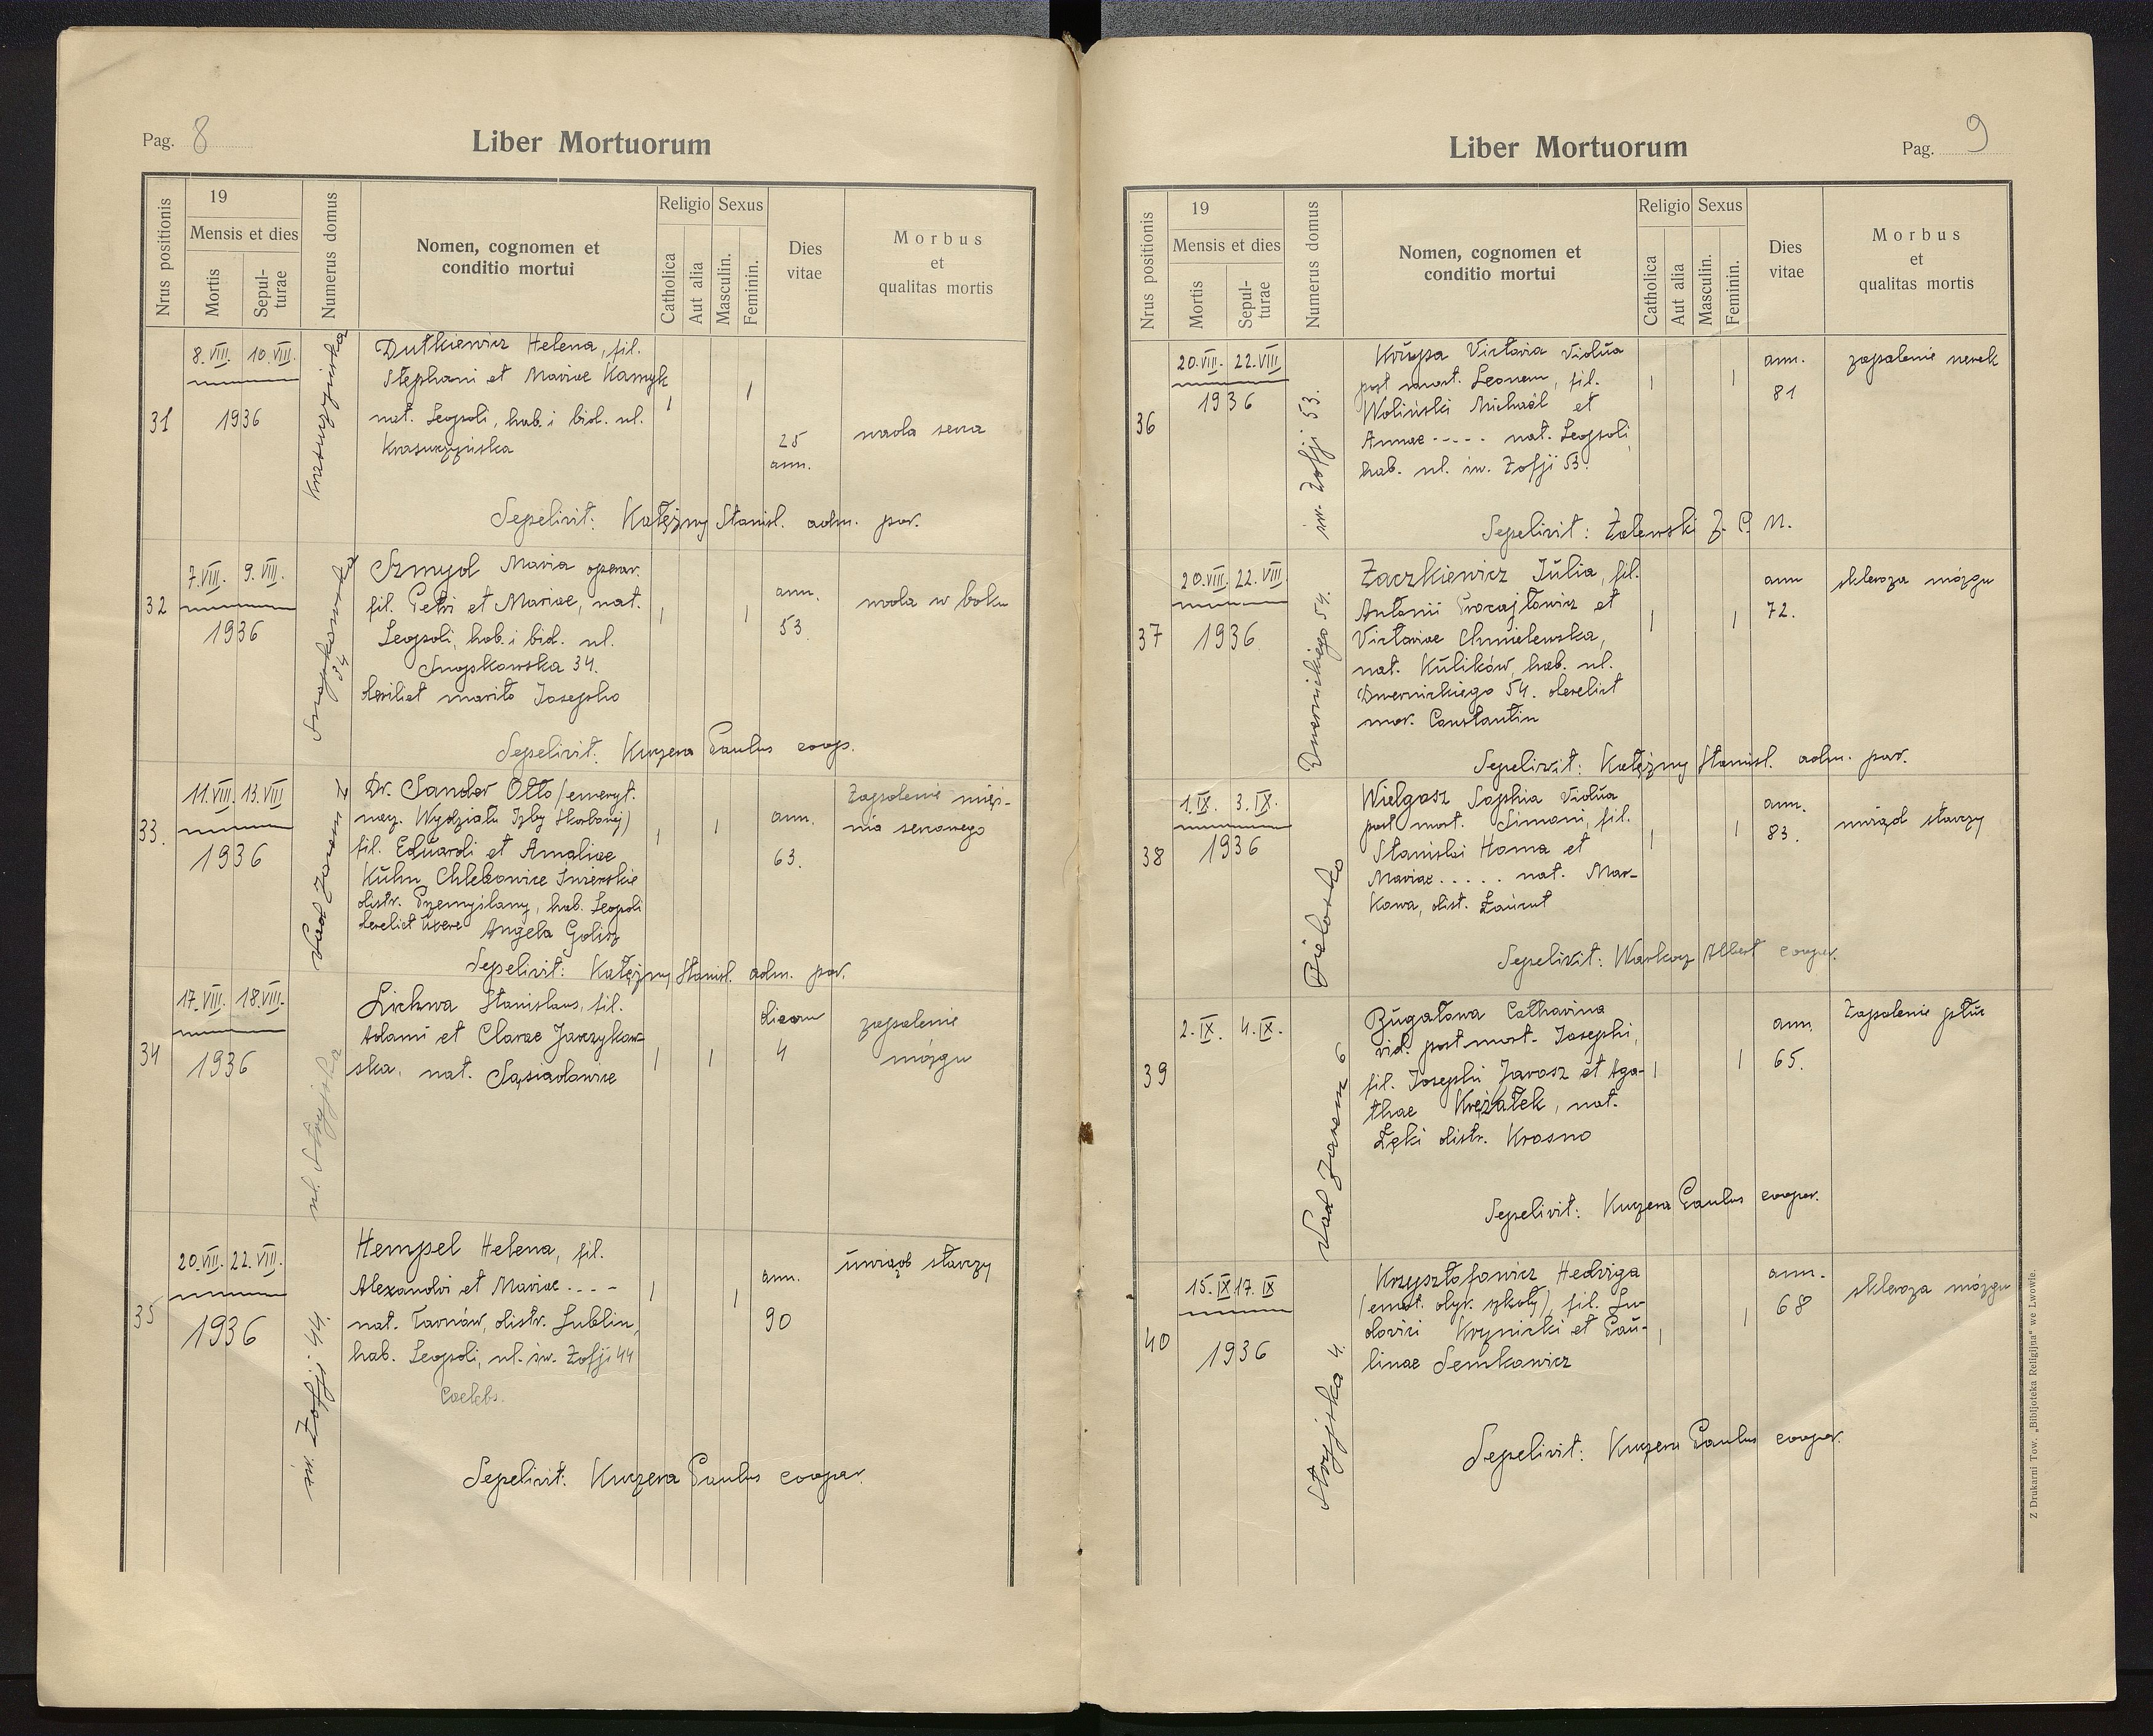 Pag. 8
Liber Mortuorum
Nrus positionis
19
Mensis et dies
Mortis
Sepul-
turae
Numerus domus
Nomen, cognomen et
conditio mortui
Religio
Catholica
Aut alia
Sexus
Masculin.
Feminin.
Dies
vitae
Morbus
et
qualitas mortis
31
8.VIII. 10.VIII.
1936
Krasuczyńska
Dutkiewicz Helena, fil.
Stephani et Mariae Kamyk
nat. Leopoli, hab. i bid. ul.
Krasuczyńska
25
ann.
wada serca
Sepelivit: Kałężny Stanisl. adm. par.
32
7.VIII. 9.VIII.
1936
Snopkowska
34
Szmyd Maria operar.
fil. Petri et Mariae, nat.
Leopoli, hab. i bid. ul.
Snopkowska 34.
marito Josepho
ann.
53.
woda w boku
Sepelivit: Kuczera Paulus coop.
33.
11.VIII. 13.VIII
1936
Nad Jarem
Dr. Sander Otto /emeryt.
nacz. Wydziału Izby Skarbowej)
fil. Eduardi et Amaliae
Kühn, Chlebowice Świrskie
distr. Przemyślany, hab. Leopoli
derelict uxore Angela Golisz
ann.
63.
Zapalenie mięś-
nia sercowego
Sepelivit: Kałężny Stanisl. adm. par.
34
17.VIII. 18.VIII.
1936
ul. Stryjska
Lichwa Stanislaus, fil.
Adami et Clarae Jarczykow-
ska, nat. Sąsiadowice
dierum
4
zapalenie
mózgu
35
20.VIII. 22.VIII.
1936
św. Zofji 44.
Hempel Helena, fil.
Alexandri et Mariae ....
nat. Tarnów, distr. Lublin,
hab. Leopoli, ul. św. Zofji 44
Coelebs.
ann.
90
uwiąd starczy
Sepelivit: Kuczera Paulus cooper.
Liber Mortuorum
Pag. 9
Nrus positionis
19
Mensis et dies
Mortis
Sepul-
turae
Numerus domus
Nomen, cognomen et
conditio mortui
Religio
Catholica
Aut alia
Sexus
Masculin.
Feminin.
Dies
vitae
Morbus
et
qualitas mortis
36
20.VIII. 22.VIII
1936
św. Zofji 53.
Krupa Victoria vidua
post mort. Leonem, fil.
Woliński Michaël et
Annae ..... nat. Leopoli,
hab. ul. św. Zofji 53.
ann.
81
zapalenie nerek
Sepelivit: Zalewski J. C. M.
37
20.VIII. 22.VIII.
1936.
Dwernickiego 54.
Zaczkiewicz Julia, fil.
Antonii Procajłowicz et
Victoriae Chmielewska,
nat. Kulików, hab. ul.
Dwernickiego 54. derelict
mar. Constantin
ann
72.
skleroza mózgu
Sepelivit: Kałężny Stanisl. adm. par.
38
1.IX. 3.IX.
1936
Bielańska
Wielgosz Sophia vidua
post mort. Simoni, fil.
Stanislai Homa et
Mariae ..... nat. Mar-
kowa, dist. Łańcut
ann.
83.
uwiąd starczy
Sepelivit: Warkocz Albert cooper.
39
2.IX. 4.IX.
Nad Jarem 6
Bugałowa Catharina
vid. post mort. Josephi,
fil. Josephi Jarosz et Aga-
thae Krężałek, nat.
Łęki distr. Krosno
ann.
65.
Zapalenie płuc
Sepelivit: Kuczera Paulus cooper.
40
15.IX 17.IX
1936
Stryjska 4.
Krzysztofowicz Hedviga
(emet. dyr. szkoły), fil. Lu-
dovici Krynicki et Pau-
linae Semkowicz
ann.
68
skleroza mózgu
Sepelivit: Kuczera Paulus cooper.
Z Drukarni Tow. „Bibljoteka Religijna" we Lwowie.